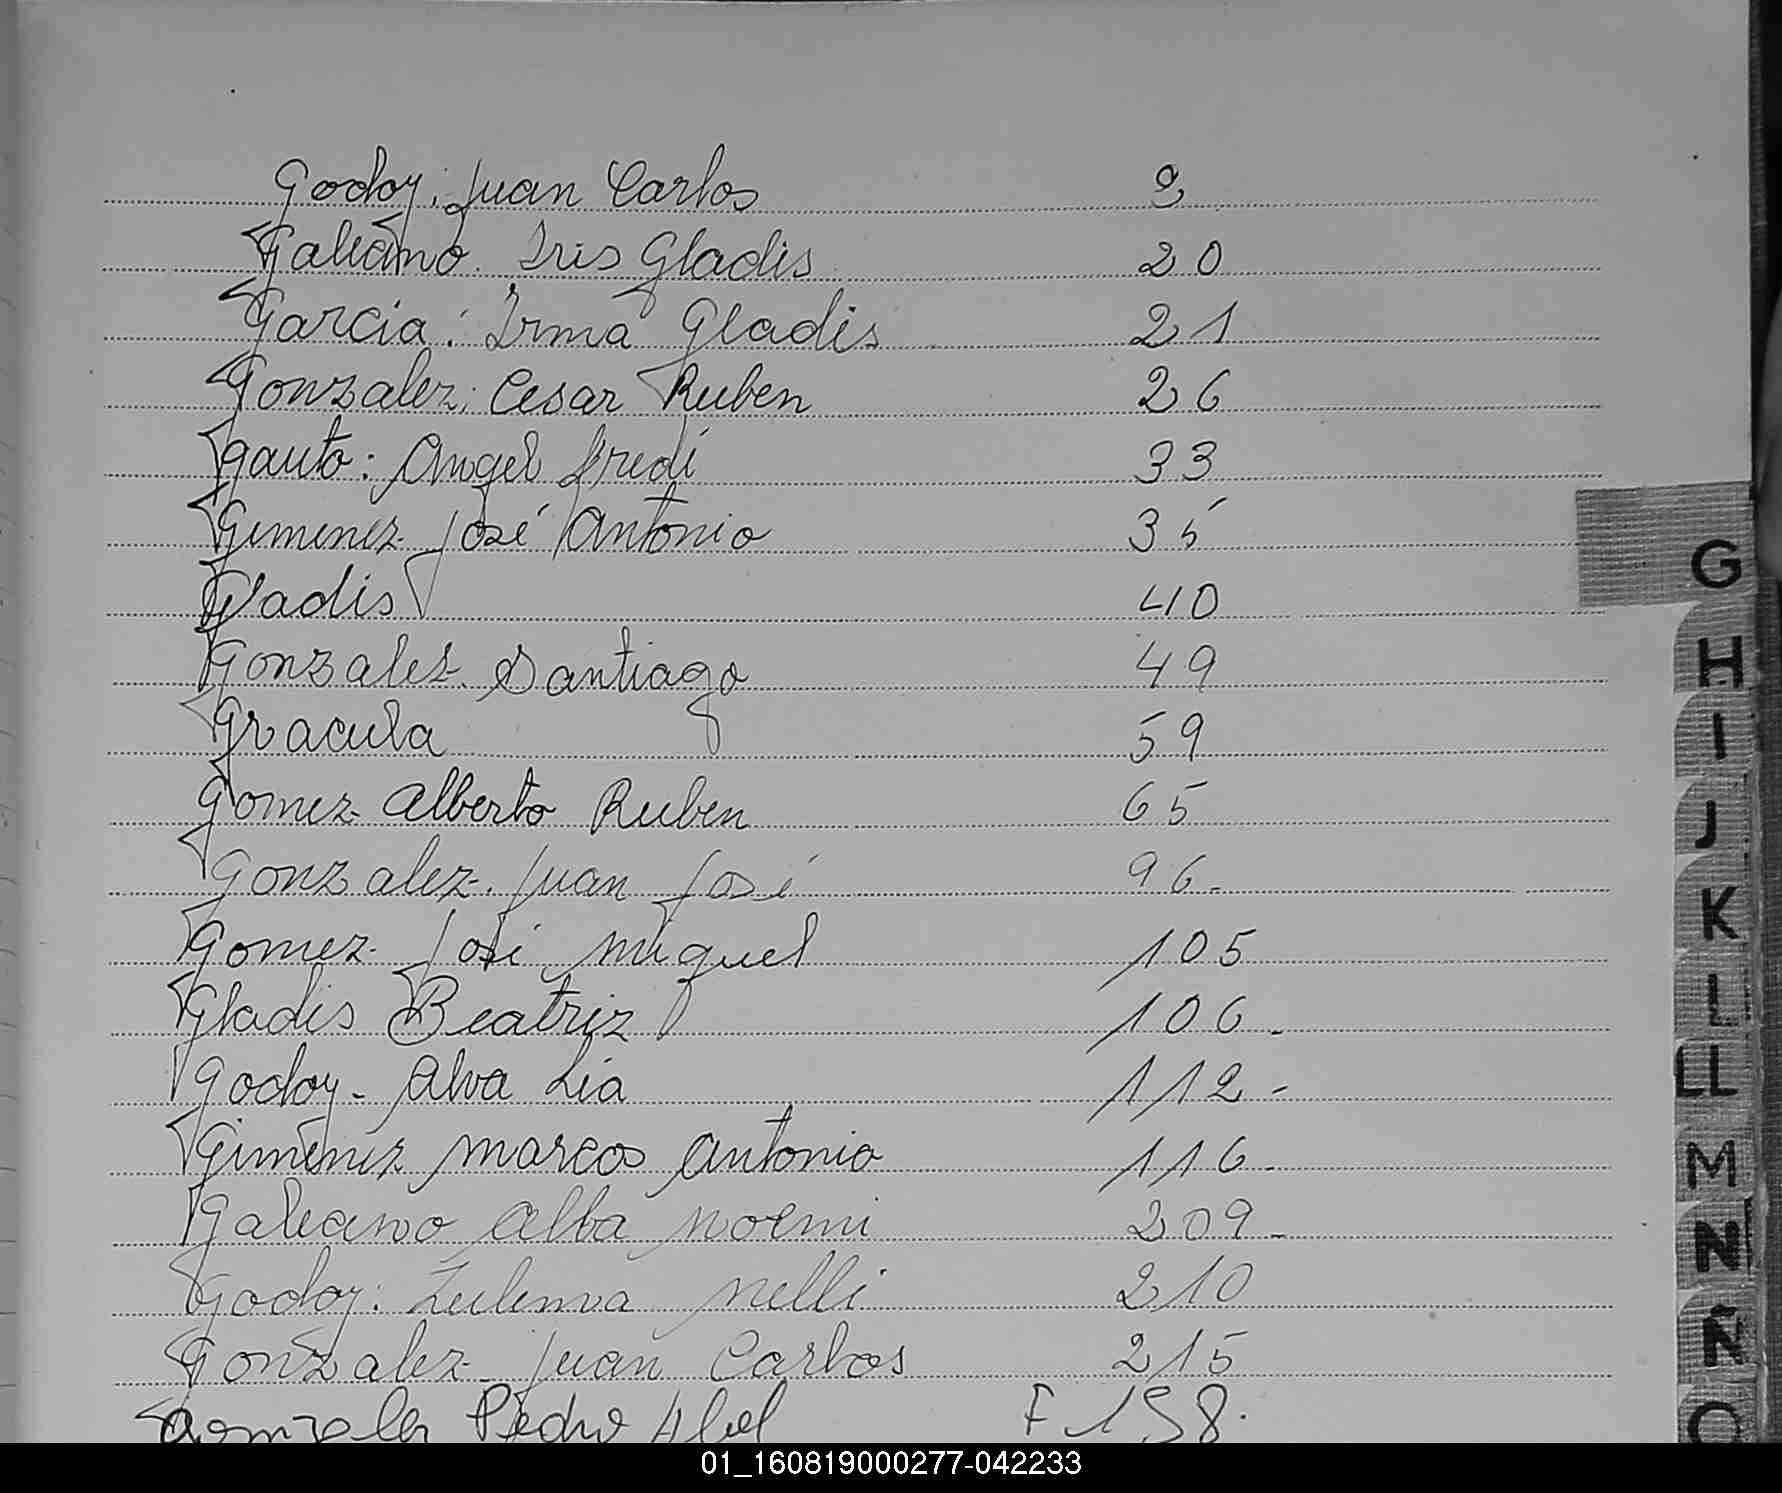 Godoy: Juan Carlos 9
Galeano. Iris Gladis 20
Garcia: Irma Gladis 21
Gonzalez: Cesar Ruben 26
Gauto: Angel Fredi 33
Gimenez José Antonio 35
Gladis 40
Gonzalez. Santiago 49
Gracula 59
Gomez Alberto Ruben 65
Gonzalez. Juan José 96.
Gomez José Miguel 105
Gladis Beatriz 106.
Godoy - Alva Lia 112-
Gimenez Marcos Antonio 116.
Galeano Alba Noemi 209-
Godoy: Zulema Nelli 210
Gonzalez Juan Carlos 215
Gonzalez Pedro Abel F 158.
G
H
I
J
K
L
LL
M
N
Ñ
O
01_160819000277-042233